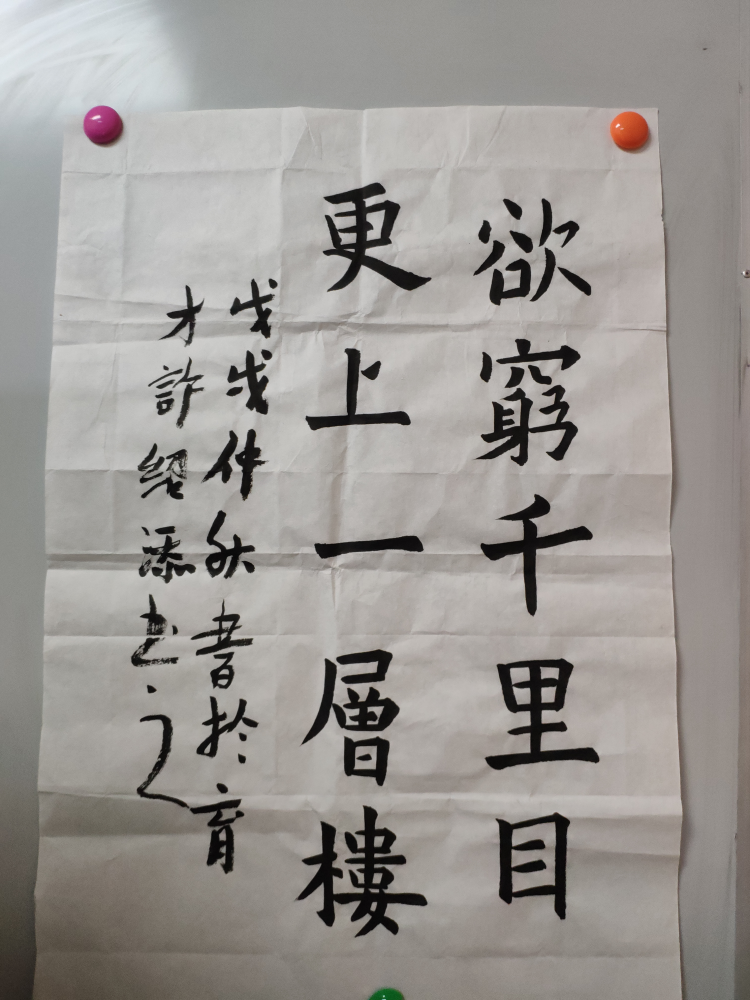 欲窮千里目
更上一層樓
戊戌仲秋書於育
才許紹添书之